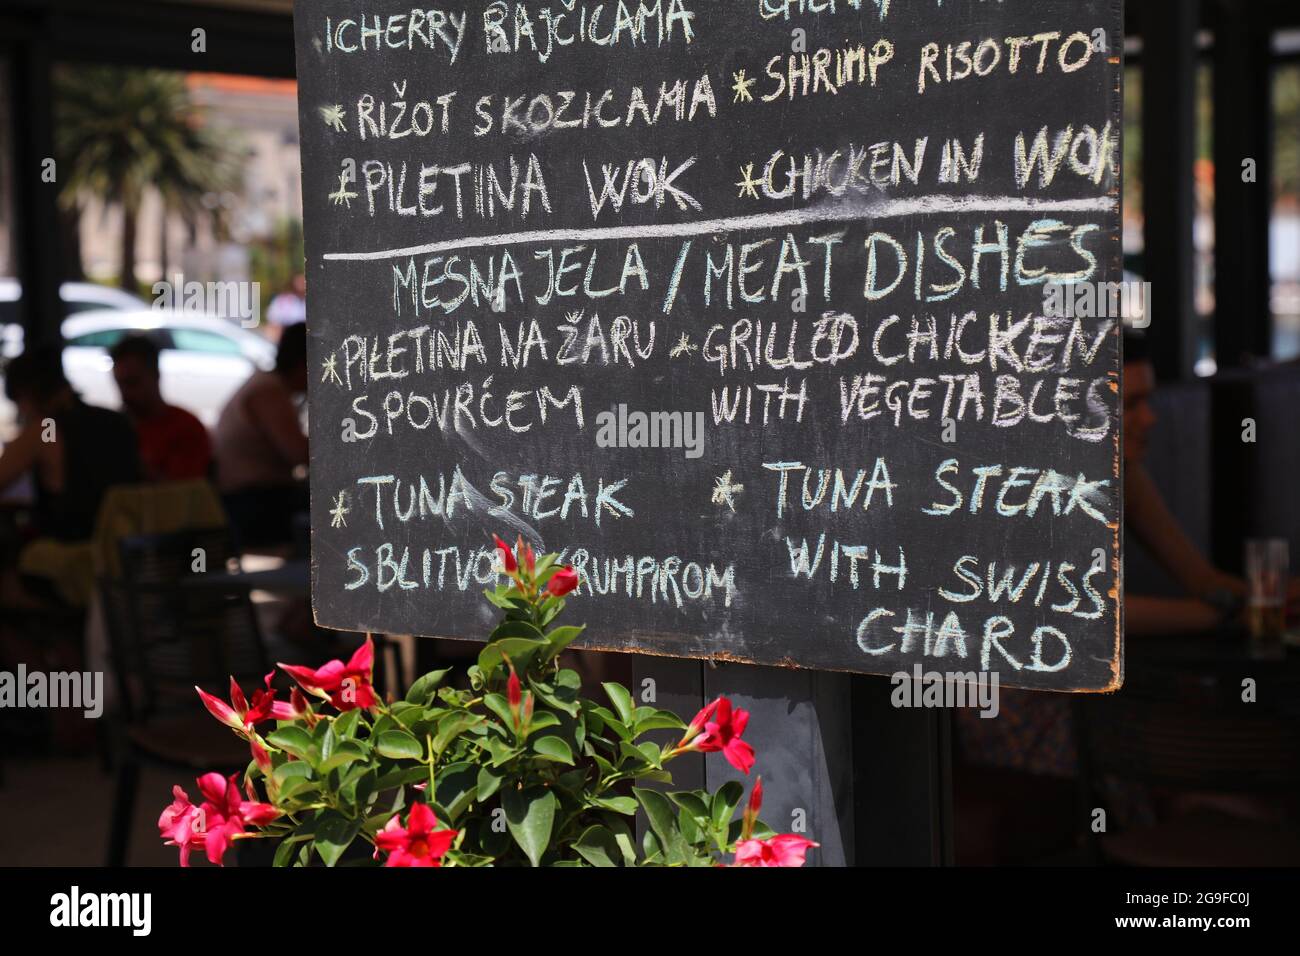 ICHERRY RAJČICAMA
*RIŽOT S KOZICAMA
*SHRIMP RISOTTO
*PILETINA WOK
*CHICKEN IN WOK
MESNA JELA / MEAT DISHES
*PILETINA NA ŽARU
S POVRĆEM
*GRILLED CHICKEN
WITH VEGETABLES
*TUNA STEAK
S BLITVOM KRUMPIROM
*TUNA STEAK
WITH SWISS
CHARD
alamy
alamy
Image ID: 2G9FC0J
www.alamy.com